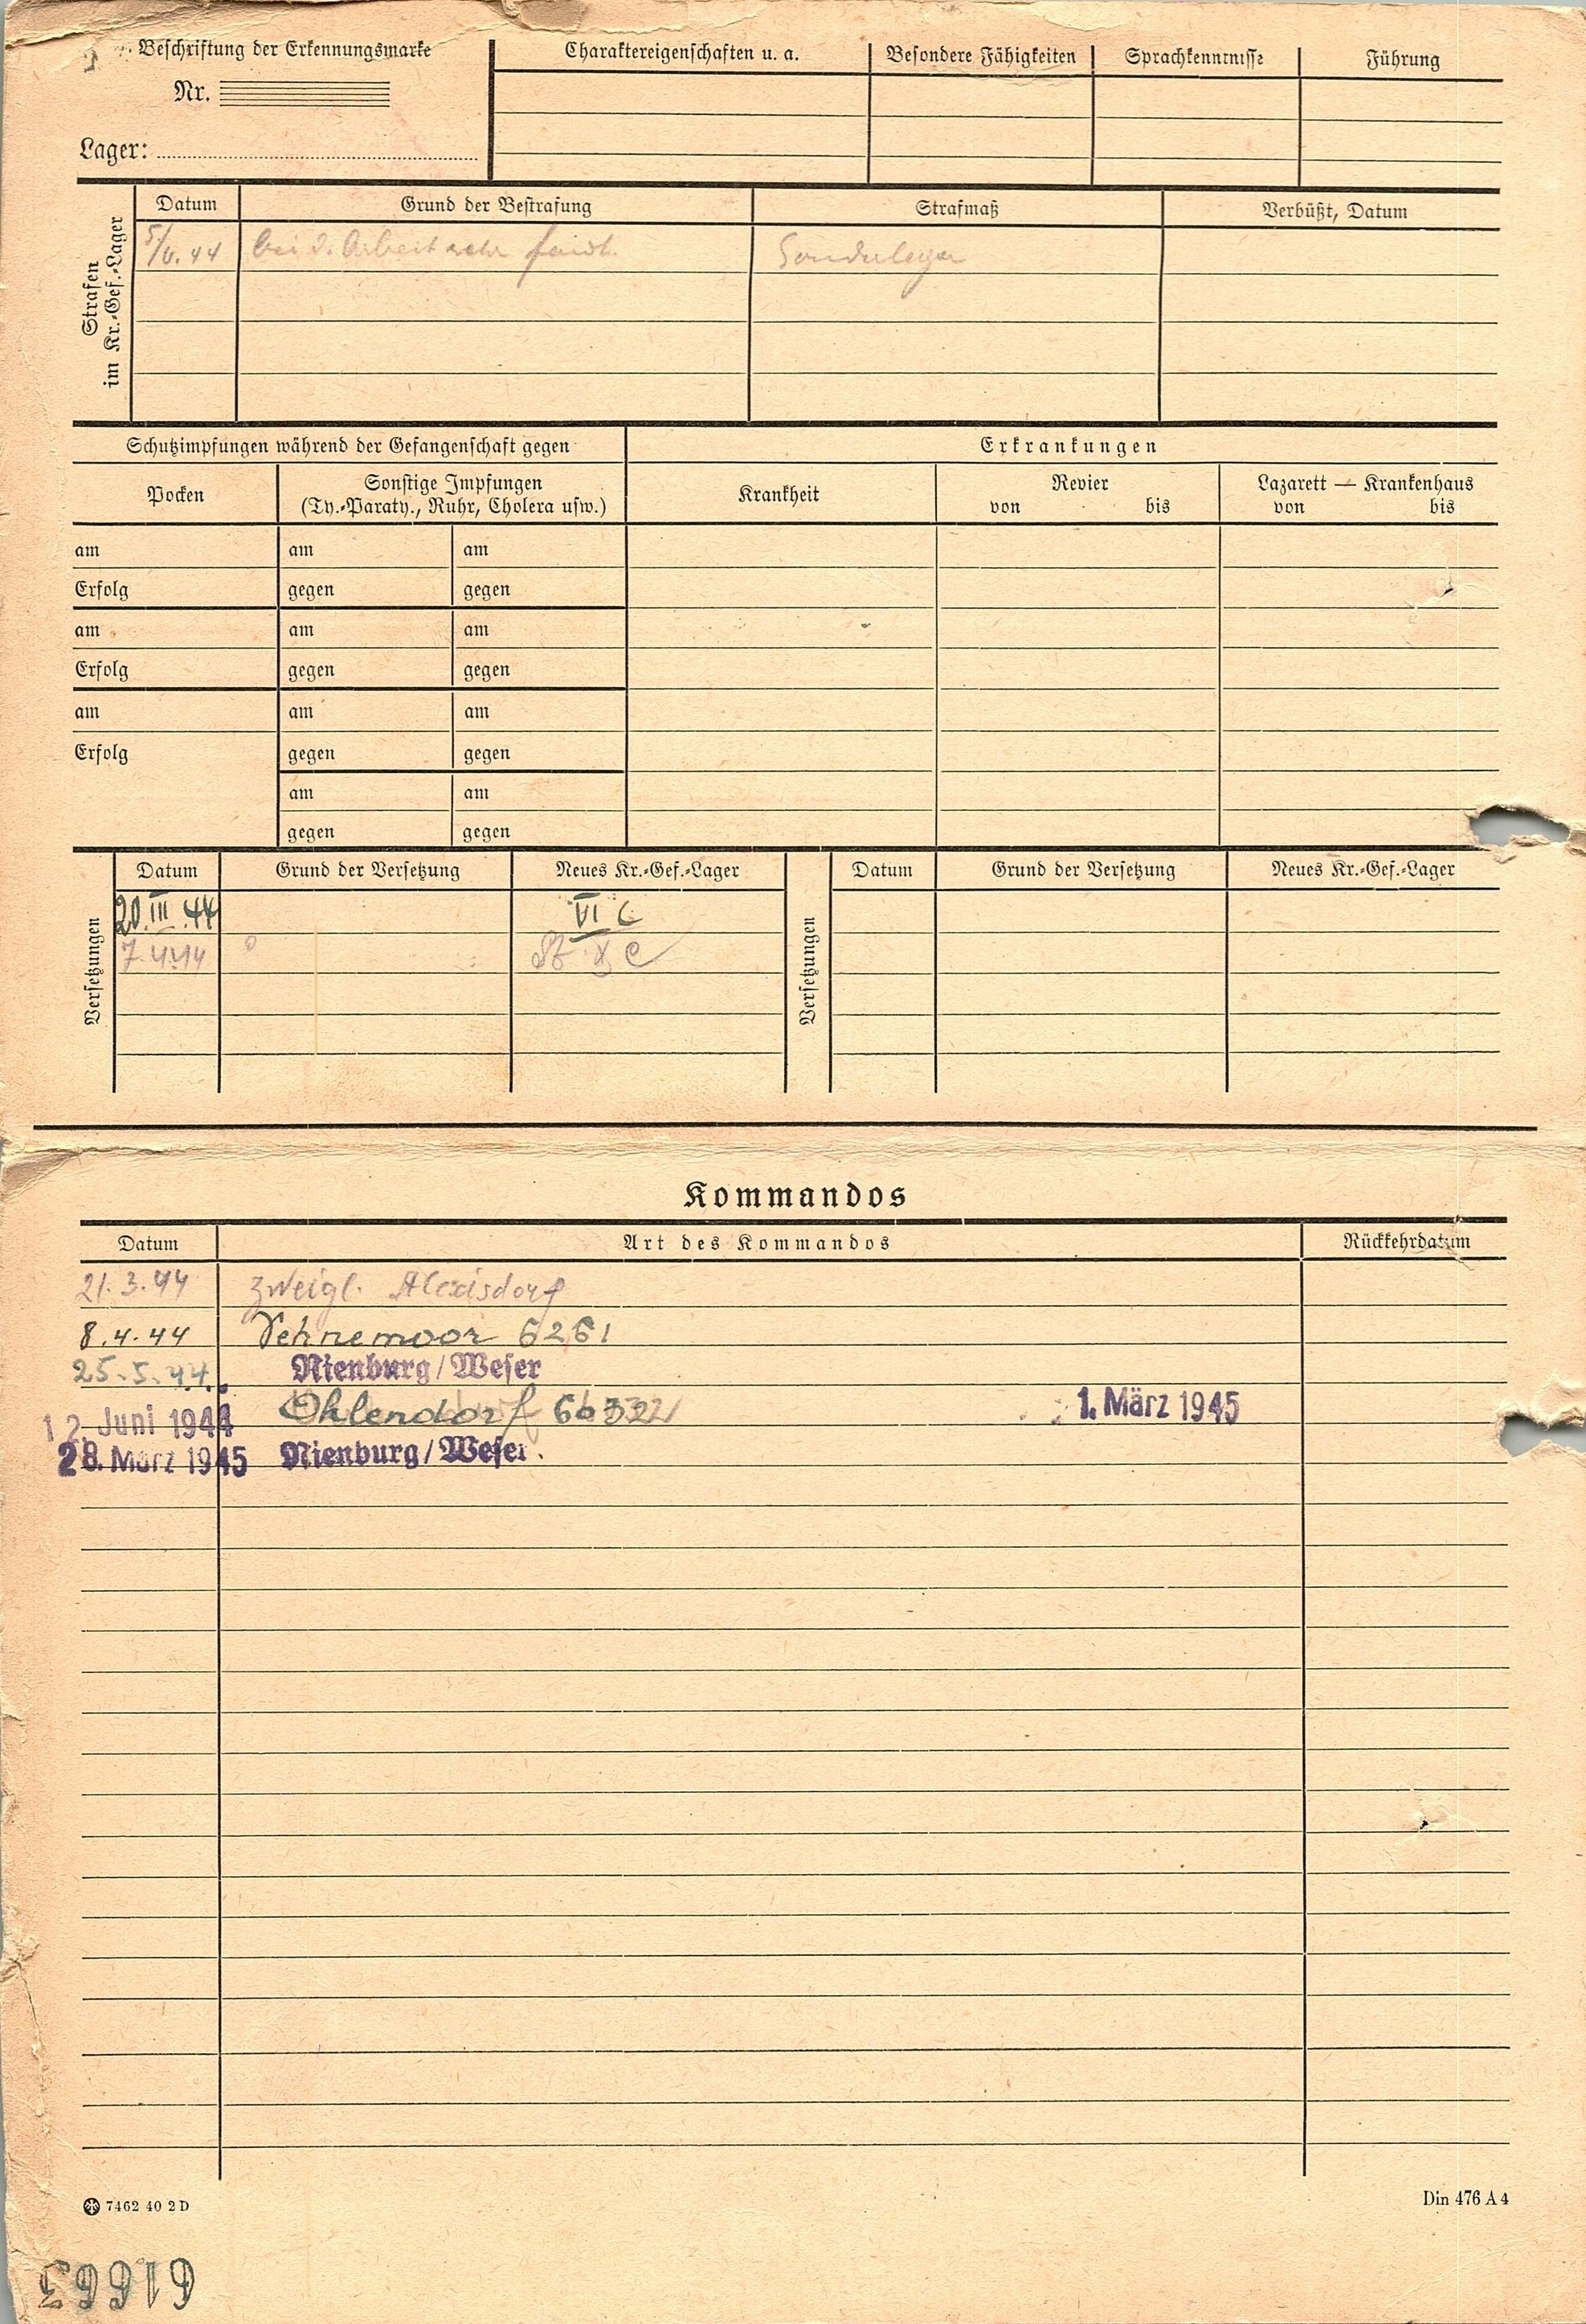 Beschriftung der Erkennungsmarke
Nr.
Lager:
Charaktereigenschaften u. a.
Besondere Fähigkeiten
Sprachkenntnisse
Führung
Strafen im Kr.-Gef.-Lager
Datum
Grund der Bestrafung
Strafmaß
Verbüßt, Datum
bei d. Arbeit sehr
Sonderlager
Schutzimpfungen während der Gefangenschaft gegen
Erkrankungen
Pocken
Sonstige Impfungen
(Ty.-Paraty., Ruhr, Cholera usw.)
Krankheit
Revier
von bis
Lazarett — Krankenhaus
von bis
am am am
Erfolg gegen gegen
am am am
Erfolg gegen gegen
am am am
Erfolg gegen gegen
am am
gegen gegen
Versetzungen
Datum Grund der Versetzung Neues Kr.-Gef.-Lager
20.III.44 VI C
7.4.44 X C
Versetzungen
Datum Grund der Versetzung Neues Kr.-Gef.-Lager
Kommandos
Datum Art des Kommandos Rückkehrdatum
21.3.44 Zweigl. Alexisdorf
8.4.44 Vehnemoor 6261
25.5.44. Nienburg/Weser
12. Juni 1944 Ohlendorf 1. März 1945
28. März 1945 Nienburg/Weser.
7462 40 2 D
Din 476 A 4
61663